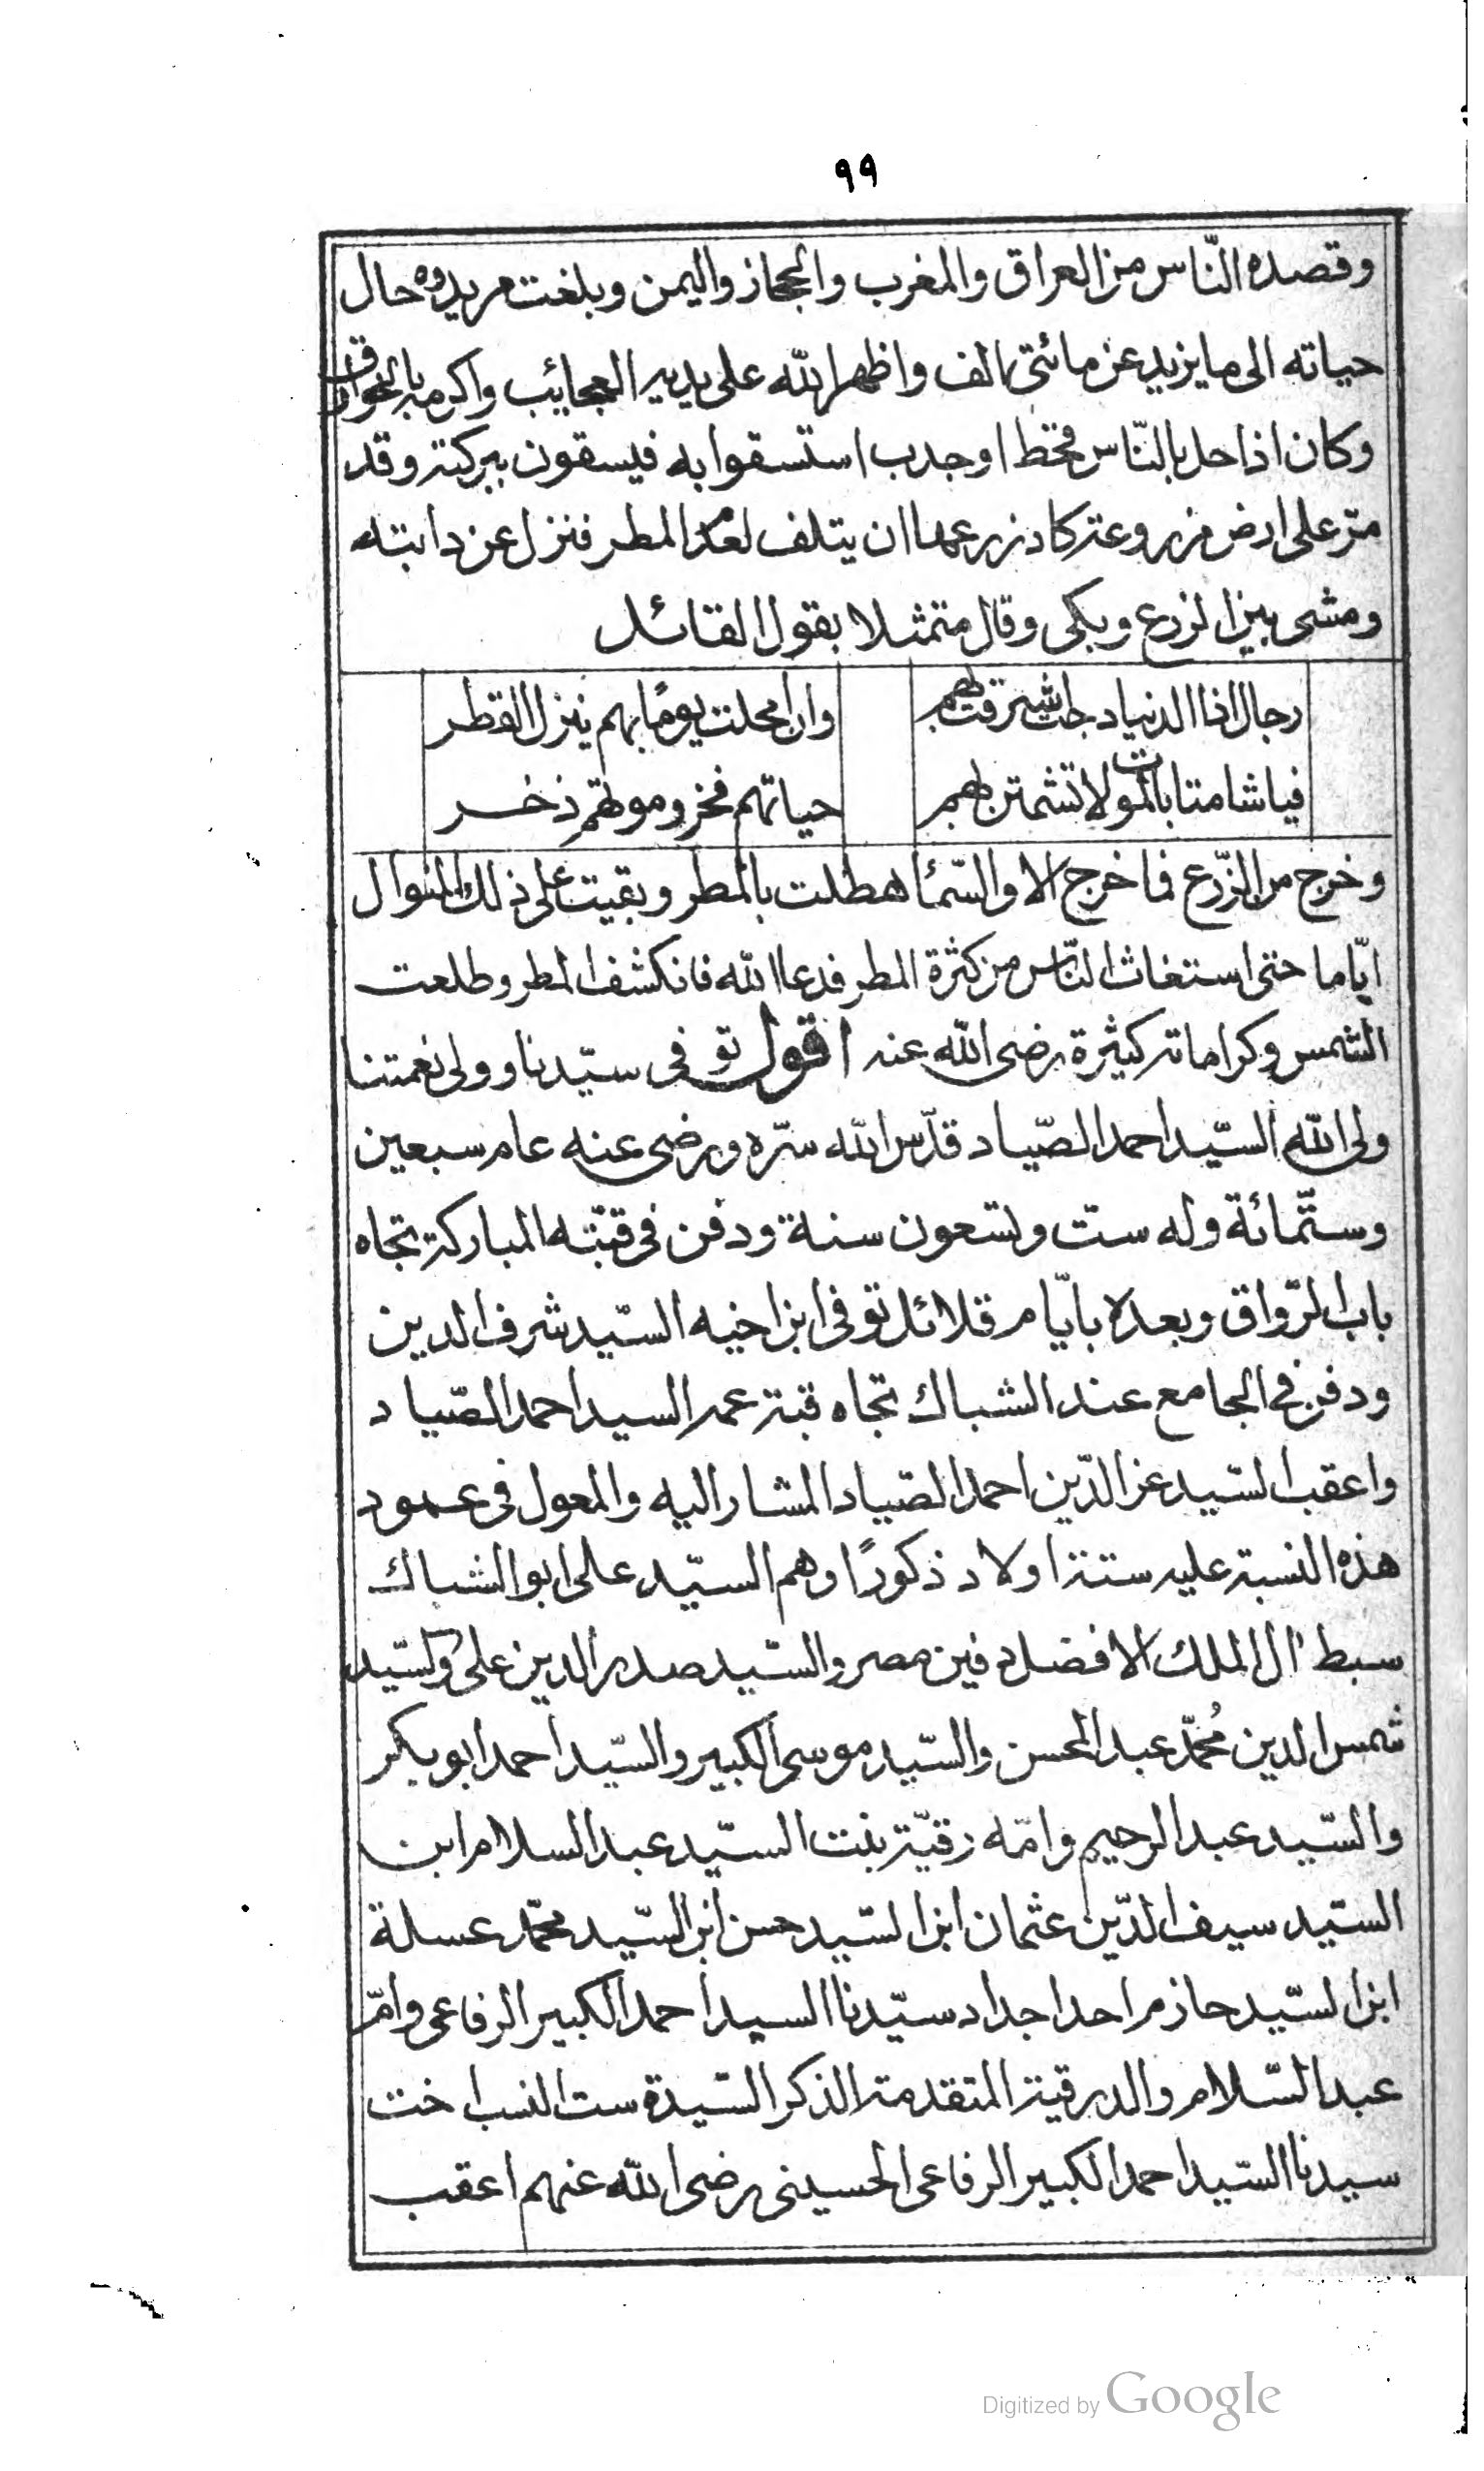 ٩٩
وقصده النّاس من العراق والمغرب والحجاز واليمن وبلغت مريدوه حال
حياته الى ما يزيد عن مائتى الف واظهر الله على يديه العجائب واكرمه بالخوارق
وكان اذا حل بالنّاس قحط او جدب استسقوا به فيسقون ببركته وقد
مرّ على ارض مزروعة كاد زرعها ان يتلف لعدم المطر فنزل عن دابته
ومشى بين الزرع وبكى وقال متمثلا بقول القائل
رجال اذا الدنيا دجت اشرقت بهم وان امحلت يومًا بهم ينزل القطر
فيا شامتا بالموت لا تشمتن بهم حياتهم فخر وموتهم ذخر
وخرج من الزّرع فما خرج الا والسّماء هطلت بالمطر وبقيت على ذلك المنوال
ايّاما حتى استغاث النّاس من كثرة المطر فدعا الله فانكشف المطر وطلعت
الشمس وكراماته كثيرة رضى الله عنه اقول توفى سيّدنا وولى نعمتنا
ولى الله السّيد احمد الصّياد قدّس الله سرّه ورضى عنه عام سبعين
وستّمائة وله ستّ وتسعون سنة ودفن فى قبّته المباركة تجاه
باب الرّواق وبعده بايّام قلائل توفى ابن اخيه السّيد شرف الدين
ودفن فى الجامع عند الشباك تجاه قبة عمه السيد احمد الصّياد
واعقب السّيد عز الدّين احمد الصّياد المشار اليه والمعول فى عمود
هذه النسبة عليه ستة اولاد ذكورًا وهم السّيد على ابو الشباك
سبط ال الملك الافضل دفين مصر والسّيد صدر الدين على والسّيد
شمس الدين مُحمّد عبد المحسن والسّيد موسى الكبير والسّيد احمد ابو بكر
والسّيد عبد الرحيم وامّه رقيّة بنت السّيد عبد السلام ابن
السّيد سيف الدّين عثمان ابن السّيد حسن ابن السّيد محمّد عسلة
ابن السّيد حازم احد اجداد سيّدنا السيد احمد الكبير الرفاعى وامّ
عبد السّلام والد رقية المتقدمة الذكر السّيدة ست النسب اخت
سيدنا السّيد احمد الكبير الرفاعى الحسينى رضى الله عنهم اعقب
Digitized by Google